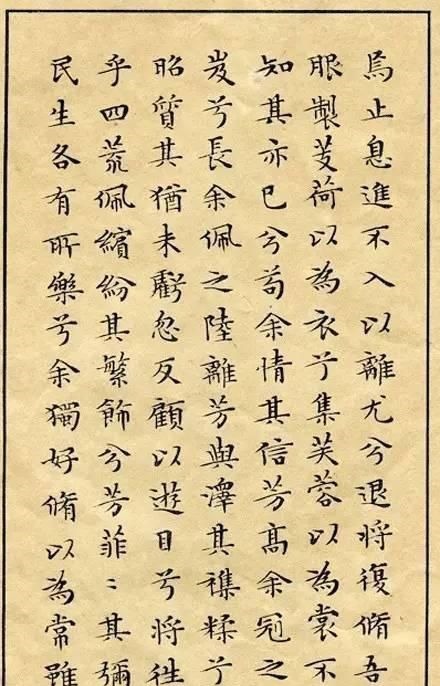 焉止息進不入以離尤兮退将復脩吾
服製芰荷以為衣兮集芙蓉以為裳不
知其亦已兮苟余情其信芳髙余冠之
岌兮長余佩之陸離芳與澤其襍糅兮
昭質其猶未虧忽反顧以遊目兮将往
乎四荒佩繽紛其繁飾兮芳菲〻其彌
民生各有所樂兮余獨好脩以為常雖